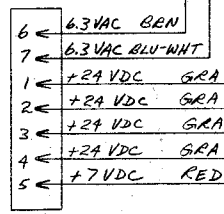 6 6.3VAC BRN
7 6.3VAC BLU-WHT
1 +24 VDC GRA
2 +24 VDC GRA
3 +24 VDC GRA
4 +24 VDC GRA
5 +7 VDC RED